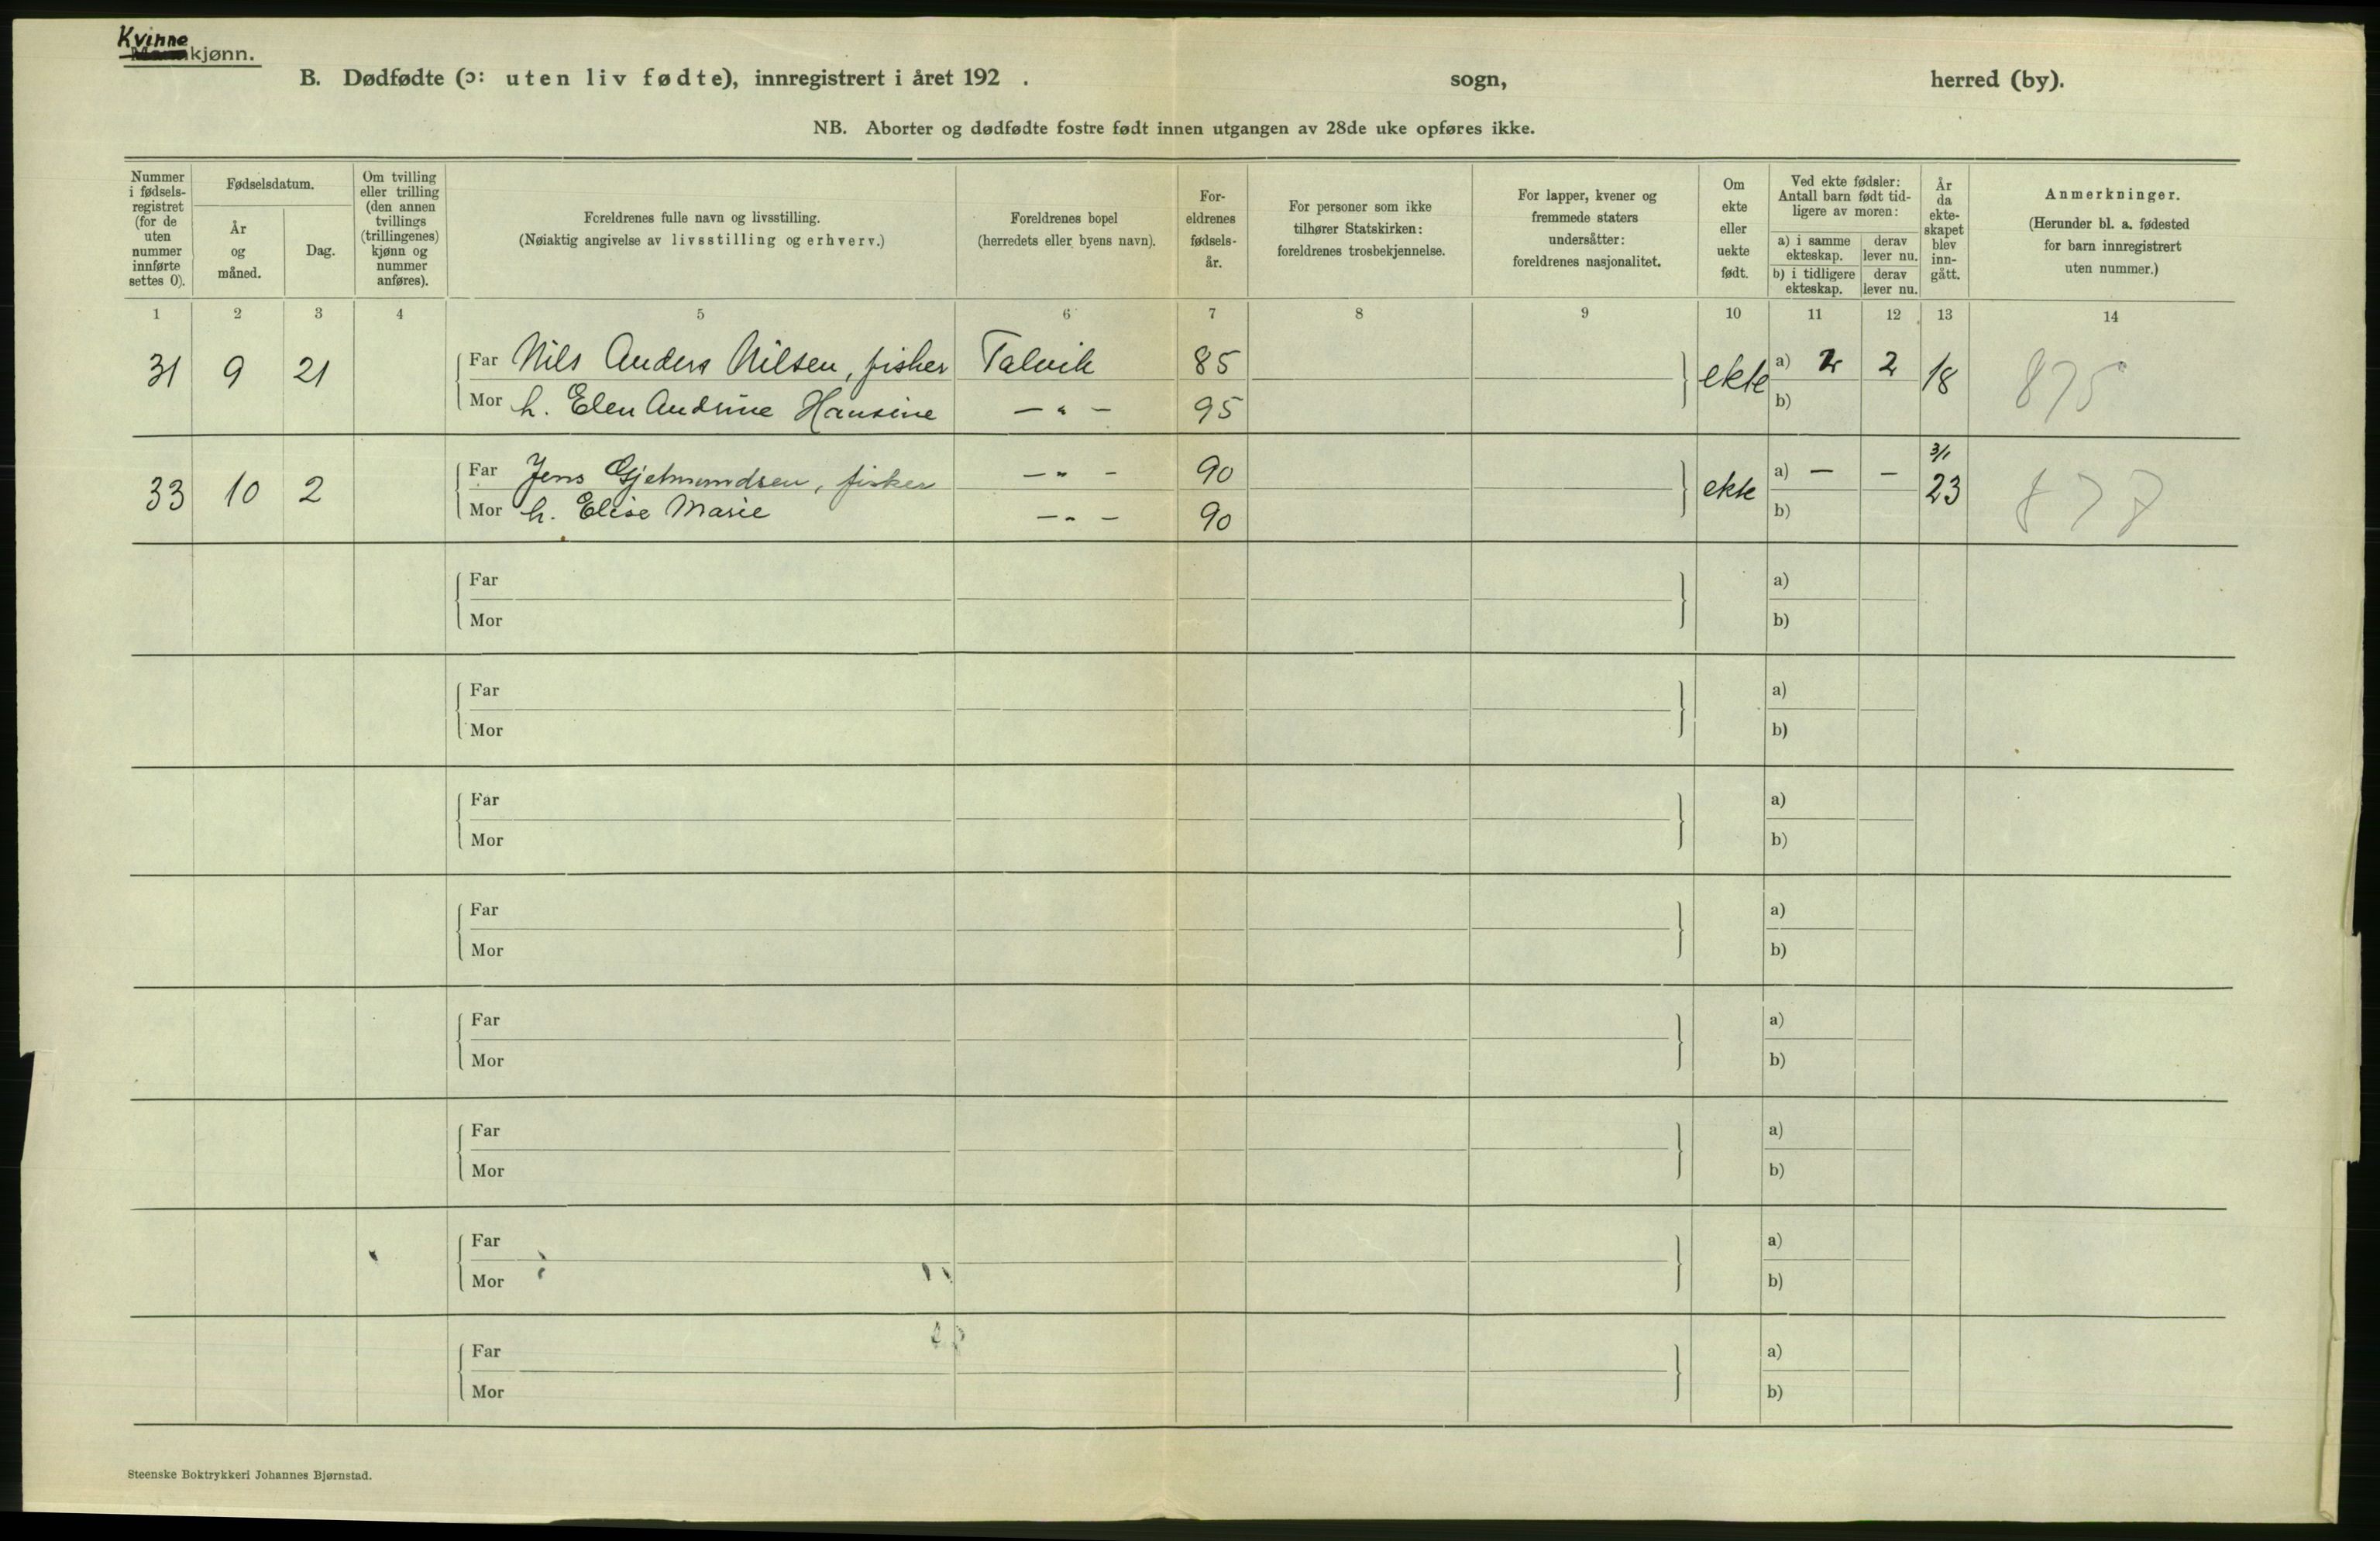 Kvinne
kjønn.
B. Dødfødte (ɔ: uten liv fødte), innregistrert i året 192 . sogn, herred (by).
NB. Aborter og dødfødte fostre født innen utgangen av 28de uke opføres ikke.
Nummer
i fødsels-
registret
(for de
uten
nummer
innførte
settes 0).
Fødselsdatum.
År
og
måned.
Dag.
Om tvilling
eller trilling
(den annen
tvillings
(trillingenes)
kjønn og
nummer
anføres).
Foreldrenes fulle navn og livsstilling.
(Nøiaktig angivelse av livsstilling og erhverv.)
Foreldrenes bopel
(herredets eller byens navn).
For-
eldrenes
fødsels-
år.
For personer som ikke
tilhører Statskirken:
foreldrenes trosbekjennelse.
For lapper, kvener og
fremmede staters
undersåtter:
foreldrenes nasjonalitet.
Om
ekte
eller
uekte
født.
Ved ekte fødsler:
Antall barn født tid-
ligere av moren:
a) i samme
ekteskap.
derav
lever nu.
b) i tidligere
ekteskap.
derav
lever nu.
År
da
ekte-
skapet
blev
inn-
gått.
Anmerkninger.
(Herunder bl. a. fødested
for barn innregistrert
uten nummer.)
1 2 3 4 5 6 7 8 9 10 11 12 13 14
31 9 21 Far Nils Anders Nilsen, fisker Talvik 85 ekte a) 2 2 18 875
Mor h. Elen Andrine Hansine — " — 95 b)
33 10 2 Far Jens Gjetmundsen, fisker — " — 90 ekte a) — — 3/1 23 877
Mor h. Elise Marie — " — 90 b)
Far a)
Mor b)
Far a)
Mor b)
Far a)
Mor b)
Far a)
Mor b)
Far a)
Mor b)
Far a)
Mor b)
Far a)
Mor b)
Far a)
Mor b)
Steenske Boktrykkeri Johannes Bjørnstad.